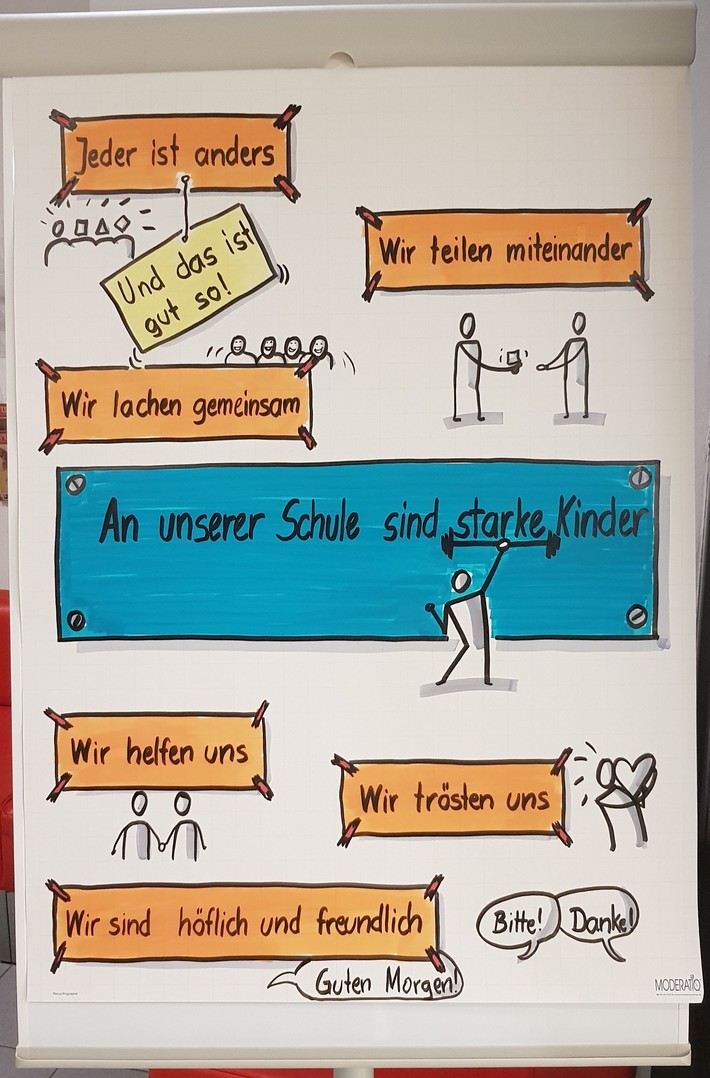 Jeder ist anders
Und das ist
gut so!
Wir teilen miteinander
Wir lachen gemeinsam
An unserer Schule sind starke Kinder
Wir helfen uns
Wir trösten uns
Wir sind höflich und freundlich
Bitte! Danke!
Guten Morgen!
MODERATIO